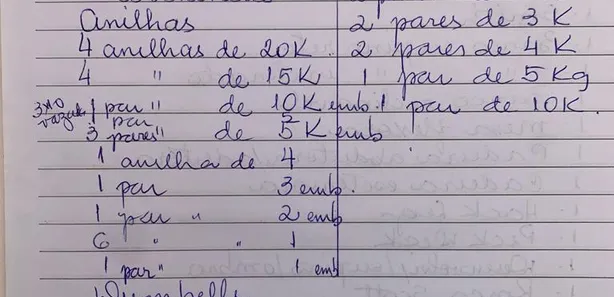 Anilhas
4 anilhas de 20K.
4 " de 15K
1 par " de 10K emb.
par
3 pares " de 5K emb
1 anilha de 4
1 par 3 emb.
1 par " 2 emb
6 " " 1
1 par " 1 emb
2 pares de 3 K
2 pares de 4 K
1 par de 5 Kg
1 par de 10K.